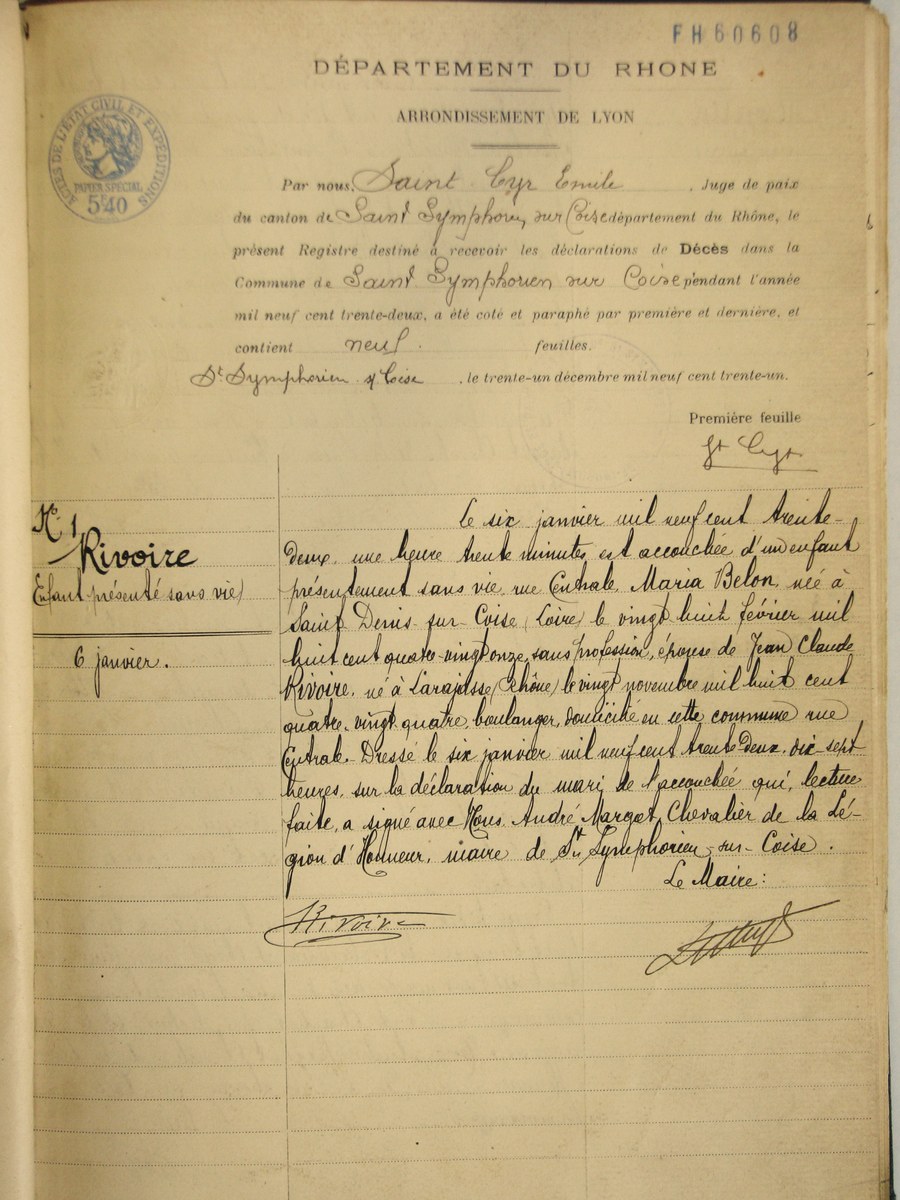 FH60608
DÉPARTEMENT DU RHONE
ARRONDISSEMENT DE LYON
ACTES DE L'ÉTAT CIVIL ET EXPÉDITIONS
PAPIER SPÉCIAL
5F40
Par nous, Saint Cyr Emile, Juge de paix
du canton de Saint Symphorien sur Coise département du Rhône, le
présent Registre destiné à recevoir les déclarations de Décès dans la
Commune de Saint Symphorien sur Coise pendant l'année
mil neuf cent trente-deux, a été coté et paraphé par première et dernière, et
contient neuf. feuilles.
St Symphorien s/ Coise, le trente-un décembre mil neuf cent trente-un.
Première feuille
St Cyr
N. 1
Rivoire
Enfant présenté sans vie)
6 janvier.
Le six janvier mil neuf cent trente-
deux, une heure trente minutes, est accouchée d'un enfant
présentement sans vie, rue Centrale, Maria Belon, née à
Saint Denis-sur-Coise (Loire) le vingt huit février mil
huit cent quatre-vingt onze, sans profession, épouse de Jean Claude
Rivoire, né à Larajasse (Rhône) le vingt novembre mil huit cent
quatre-vingt quatre, boulanger, domicilié en cette commune rue
Centrale. Dressé le six janvier mil neuf cent trente deux, dix-sept
heures, sur la déclaration du mari de l'accouchée qui, lecture
faite, a signé avec Nous André Margot, Chevalier de la Lé-
gion d'Honneur, maire de St Symphorien-sur-Coise.
Le Maire:
Rivoire